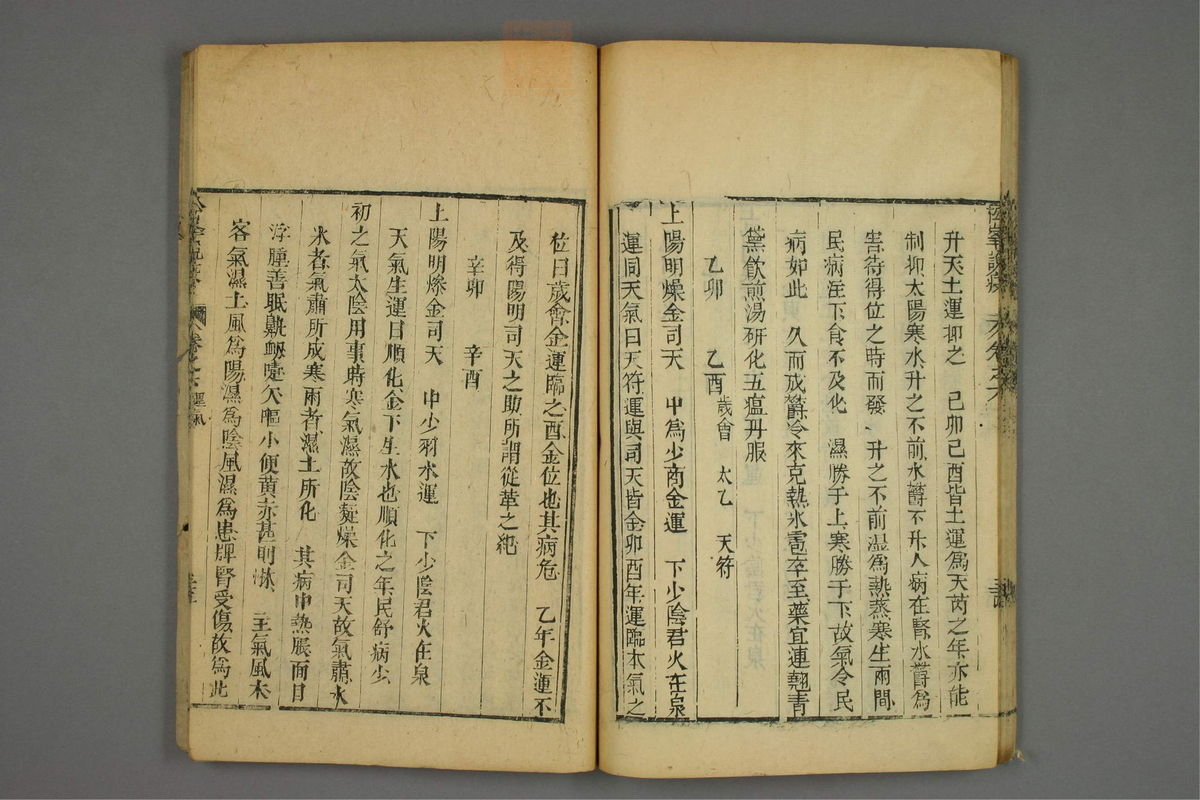 升天土運抑之　己卯己酉皆土運爲天芮之年亦能
制抑太陽寒水升之不前水欝不升人病在腎水欝爲
害待得位之時而發　升之不前溫爲熱蒸寒生兩間
民病注下食不及化　濕勝于上寒勝于下故氣令民
病如此　久而成欝冷來克熱氷雹卒至藥宜連翹青
黛飲煎湯研化五瘟丹服
乙卯　乙酉歲會　太乙　天符
上陽明燥金司天　中爲少商金運　下少陰君火在泉
運同天氣曰天符運與司天皆金卯酉年運臨本氣之
位曰歲會金運臨之酉金位也其病危　乙年金運不
及得陽明司天之助所謂從革之紀
辛卯　辛酉
上陽明燥金司天　中少羽水運　下少陰君火在泉
天氣生運曰順化金下生水也順化之年民舒病少
初之氣太陰用事時寒氣濕故陰凝燥金司天故氣肅水
氷者氣肅所成寒雨者濕土所化　其病中熱脹面目
浮腫善眠鼽衂嚏欠嘔小便黄赤甚則淋　主氣風木
客氣濕土風爲陽濕爲陰風濕爲患脾腎受傷故爲此